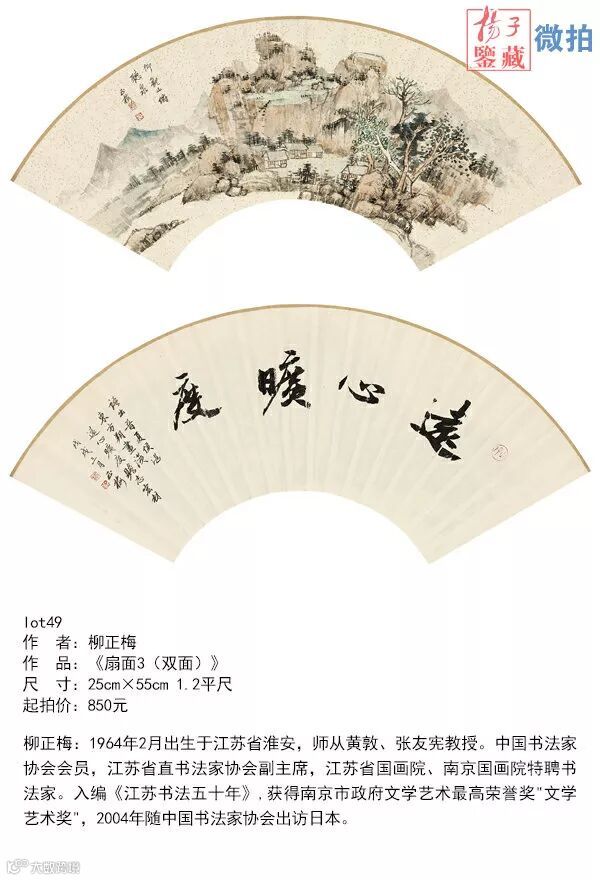 揚子
鑒藏 微拍
遠心曠度
戊戌
lot49
作　者：柳正梅
作　品：《扇面3（双面）》
尺　寸：25cm×55cm 1.2平尺
起拍价：850元
柳正梅：1964年2月出生于江苏省淮安，师从黄敦、张友宪教授。中国书法家
协会会员，江苏省直书法家协会副主席，江苏省国画院、南京国画院特聘书
法家。入编《江苏书法五十年》,获得南京市政府文学艺术最高荣誉奖"文学
艺术奖"，2004年随中国书法家协会出访日本。
大数跨境